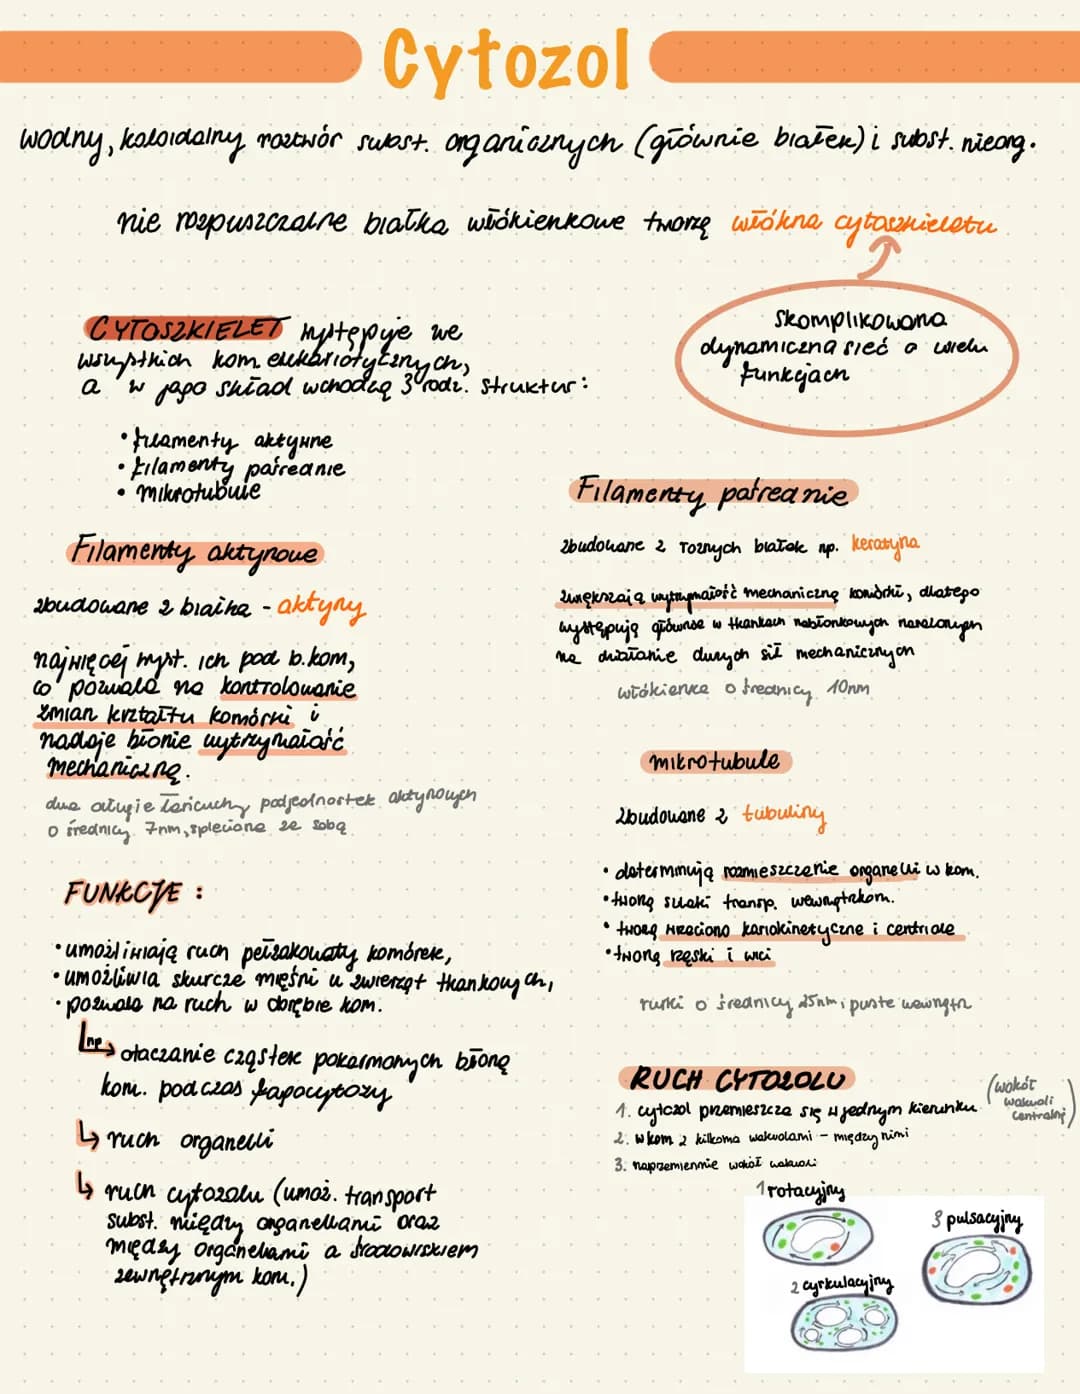 Cytozol
wodny, koloidalny roztwór subst. organicznych (głównie białek) i subst. nieorg.
nie rozpuszczalne białka włókienkowe tworzą włókna cytoszkieletu
Skomplikowana
dynamiczna sieć o wielu
funkcjach
CYTOSZKIELET występuje we
wszystkich kom. eukariotycznych,
a w jego skład wchodzą 3 rodz. struktur:
• filamenty aktynne
• filamenty pośrednie
• mikrotubule
Filamenty aktynowe
zbudowane z białka - aktyny
najwięcej wyst. ich pod b.kom,
co pozwala na kontrolowanie
zmian kształtu komórki i
nadaje błonie wytrzymałość
mechaniczną.
dwa długie łańcuchy podjednostek aktynowych
o średnicy 7nm, splecione ze sobą
FUNKCJE :
• umożliwiają ruch pełzakowaty komórek,
• umożliwia skurcze mięśni u zwierząt tkankowych,
• pozwala na ruch w obrębie kom.
np
otaczanie cząstek pokarmowych błoną
kom. podczas fagocytozy
ruch organelli
ruch cytozolu (umoż. transport
subst. między organellami oraz
między organellami a środowiskiem
zewnętrznym kom.)
Filamenty pośrednie
zbudowane z różnych białek np. keratyna
zwiększają wytrzymałość mechaniczną komórki, dlatego
występują głównie w tkankach nabłonkowych narażonych
na działanie dużych sił mechanicznych
włókienka o średnicy 10nm
mikrotubule
zbudowane z tubuliny
• determinują rozmieszczenie organelli w kom.
• tworzą szlaki transp. wewnątrzkom.
• tworzą wrzeciono kariokinetyczne i centriole
• tworzą rzęski i wici
rurki o średnicy 25nm, puste wewnątrz
RUCH CYTOZOLU
1. cytozol przemieszcza się w jednym kierunku
(wokół
wakuoli
centralnej)
2. w kom z kilkoma wakuolami - między nimi
3. naprzemiennie wokół wakuoli
1 rotacyjny
3 pulsacyjny
2 cyrkulacyjny